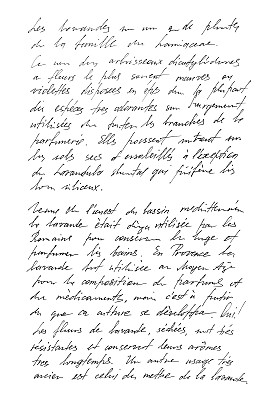 Les lavandes un genre de plantes
de la famille des lamiaceae.
Ce sont des arbrisseaux dicotylédones
à fleurs le plus souvent mauves ou
violettes disposées en épis dont la plupart
des espèces très odorantes sont largement
utilisées dans toutes les branches de la
parfumerie. Elles poussent surtout sur
les sols secs et ensoleillés à l'exception
de lavandula qui préfère les
sols siliceux.
Venue de l'ouest du bassin méditerranéen
la lavande était déjà utilisée par les
Romains pour conserver le linge et
parfumer les bains. En Provence la
lavande fut utilisée au Moyen Age
pour la composition de parfums et
de médicaments, mais c'est à partir
du que sa culture se développa.
Les fleurs de lavande, séchées, sont très
résistantes et conservent leurs arômes
très longtemps. Un autre usage très
ancien est celui de mettre de la lavande